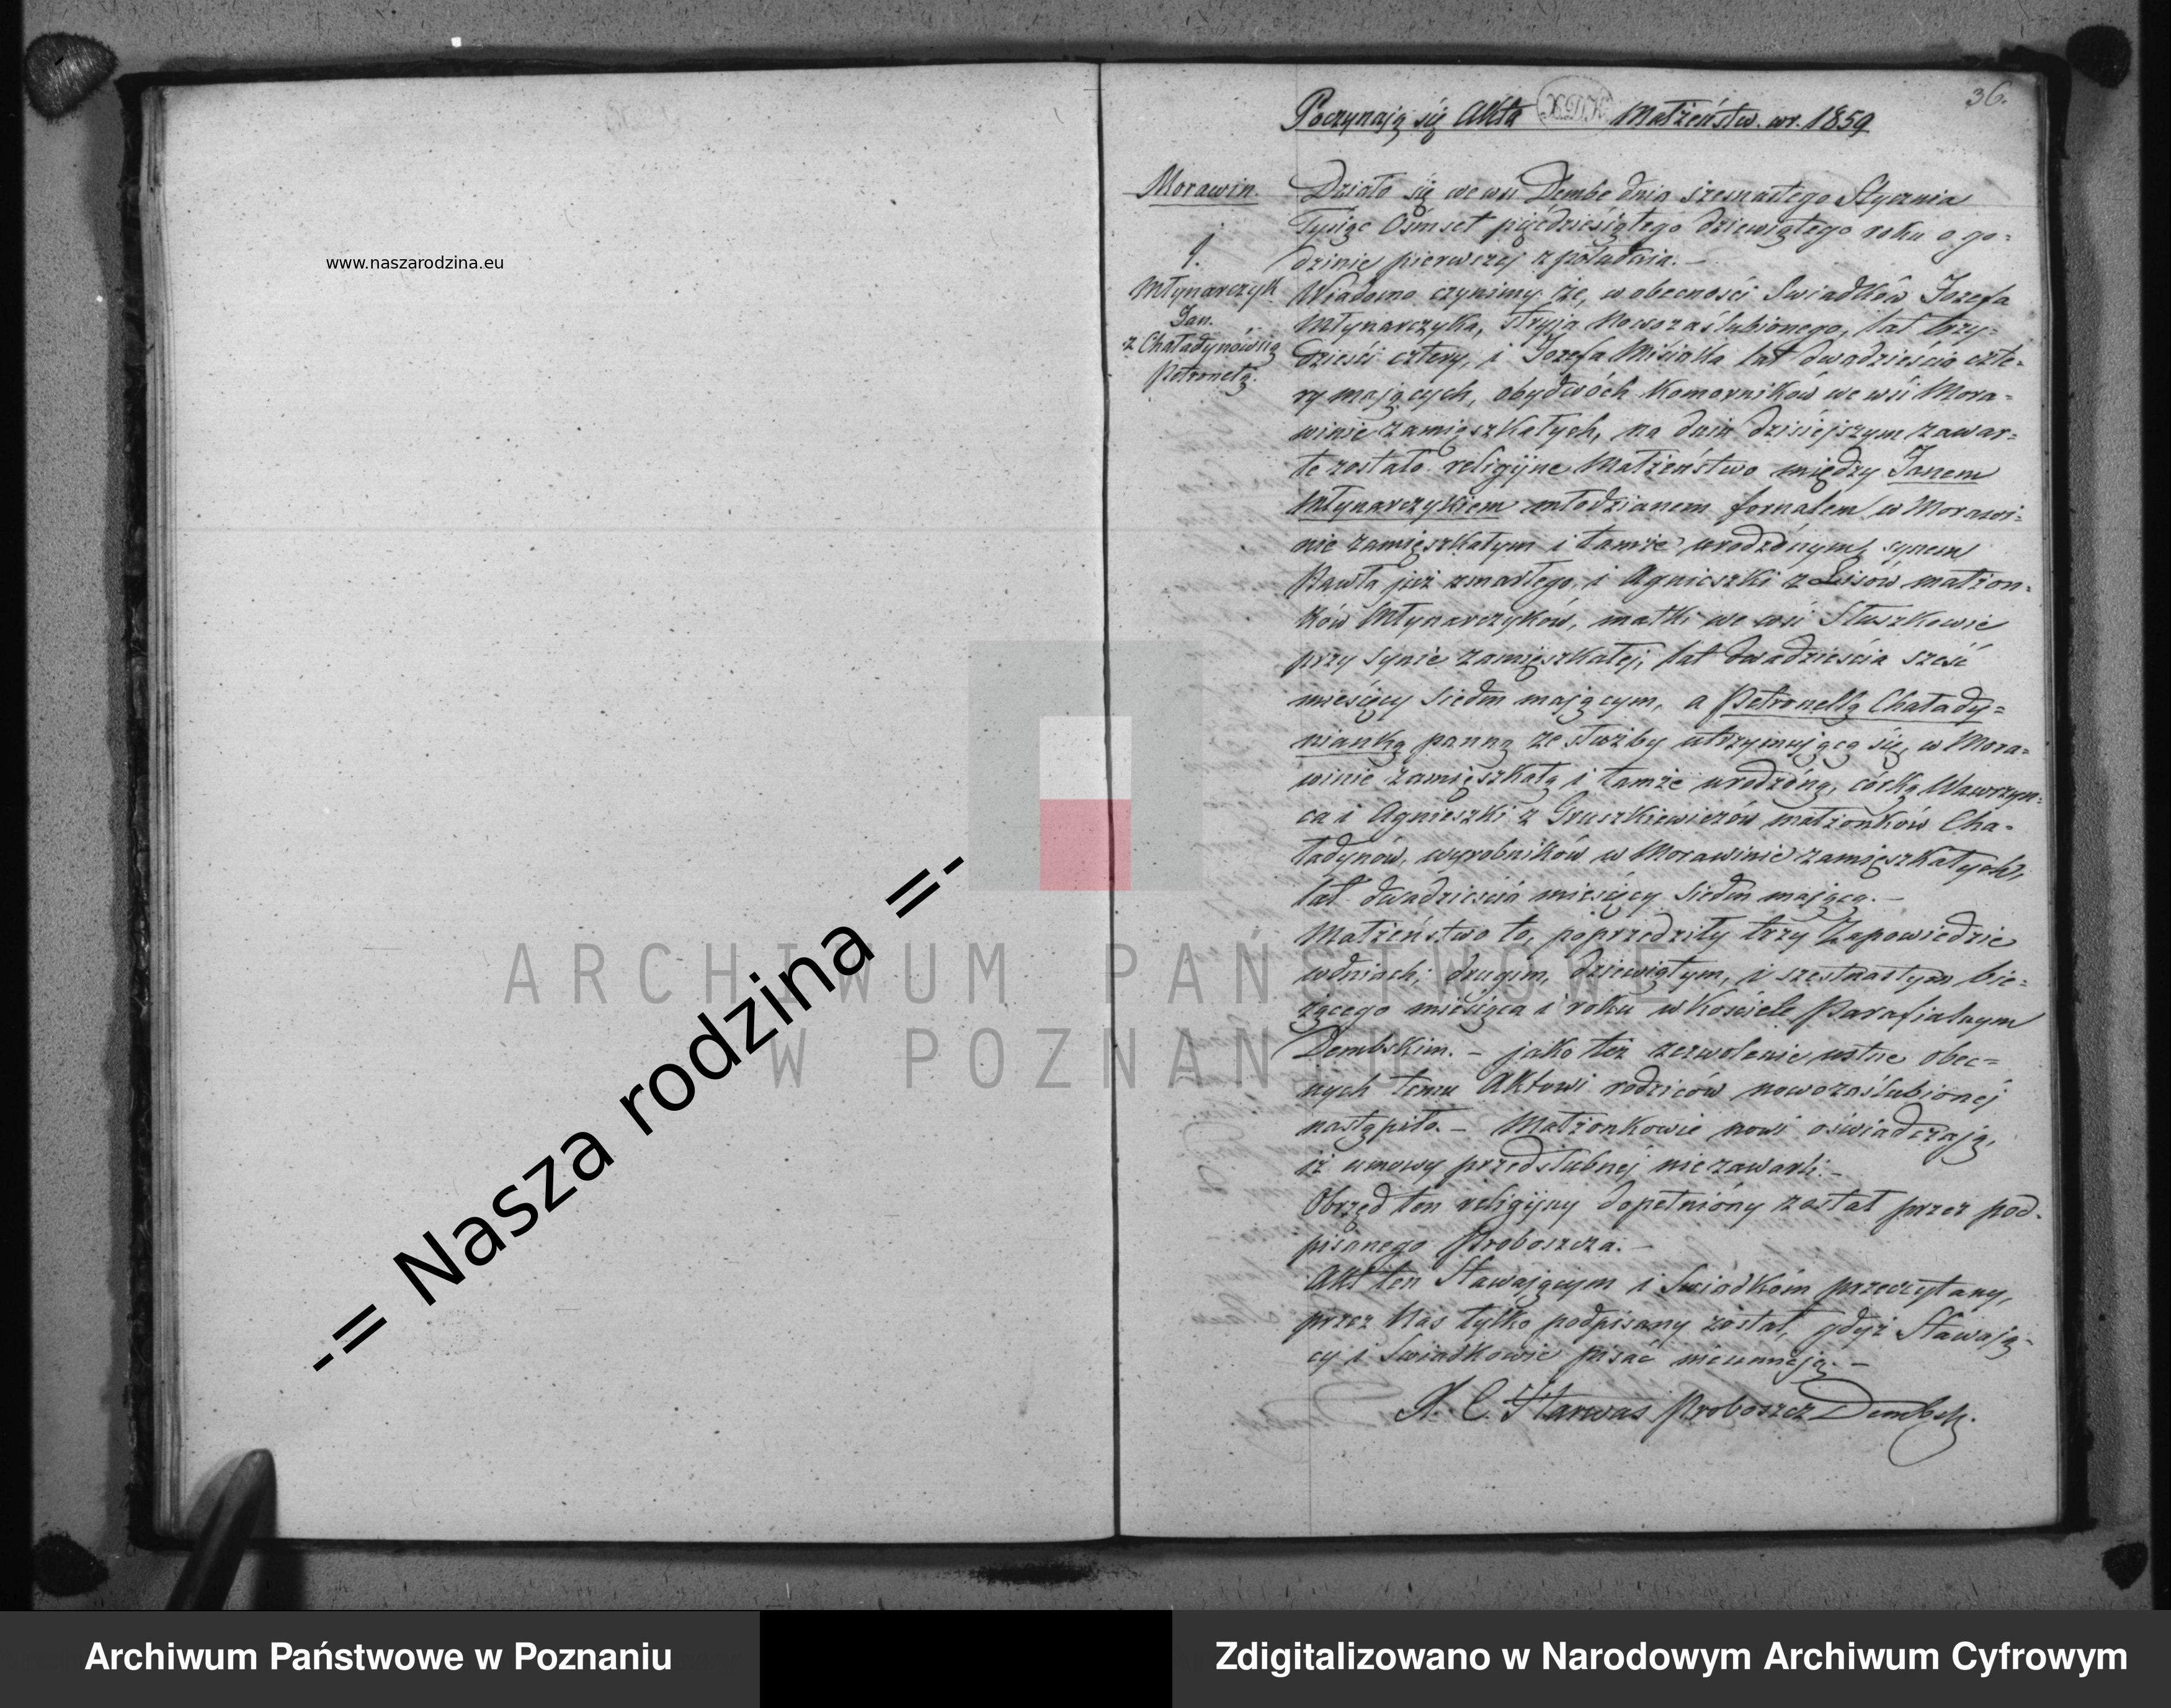 36.
Poczynają się Akta Małżeństw. wr. 1859
www.naszarodzina.eu
Morawin.
1.
Młynarczyk
Jan.
z Chaładynówną
Petronelą.
Działo się we wsi Dembe dnia szesnastego Stycznia
Tysiąc Ośmset pięćdziesiątego dziewiątego roku o go=
dzinie pierwszej z południa. –
Wiadomo czynimy że, w obecności Świadków Jozefa
Młynarczyka, stryja Nowozaślubionego, lat trzy=
dzieści cztery, i Jozefa Misiaka lat dwadzieścia czte=
ry mających, obydwóch Komorników we wsi Mora=
winie zamięszkałych, na dniu dzisiejszym zawar=
te zostało religijne Małżeństwo między Janem
Młynarczykiem młodzianem fornalem w Morawi=
nie zamięszkałym i tamże urodzónym, synem
Pawła już zmarłego, i Agnieszki z Lisów małżon=
ków Młynarczyków, matki we wsi Stuszkowie
przy synie zamięszkałej, lat dwadzieścia sześć
miesięcy siedm mającym, a Petronellą Chałady=
nianką panną ze służby utrzymującą się, w Mora=
winie zamięszkałą i tamże urodzóną, córką Wawrzyn=
ca i Agnieszki z Gruszkiewiczów małżonków Cha=
ładynów, wyrobników w Morawinie zamięszkałych,
lat dwadzieścia miesięcy siedm mającą. –
Małżeństwo to, poprzedziły trzy Zapowiedzie
w dniach; drugim, dziewiątym, i szesnastym bie=
żącego miesiąca i roku w Kościele Parafialnym
Dembskim. – jako też zezwolenie ustne obec=
nych temu Aktowi rodziców nowozaślubionej
nastąpiło. – Małżonkowie nowi oświadczają,
iż umowy przedślubnej niezawarli. –
Obrzęd ten religijny dopełnióny został przez pod=
pisanego Proboszcza. –
Akt ten Stawającym i Świadkóm przeczytany,
przez Nas tylko podpisany został, gdyż Stawają=
cy i Świadkowie pisać nieumieją. –
X. C. Harwas Proboszcz Dembsk.
-= Nasza rodzina =-
ARCHIWUM PAŃSTWOWE
W POZNANIU
Archiwum Państwowe w Poznaniu
Zdigitalizowano w Narodowym Archiwum Cyfrowym